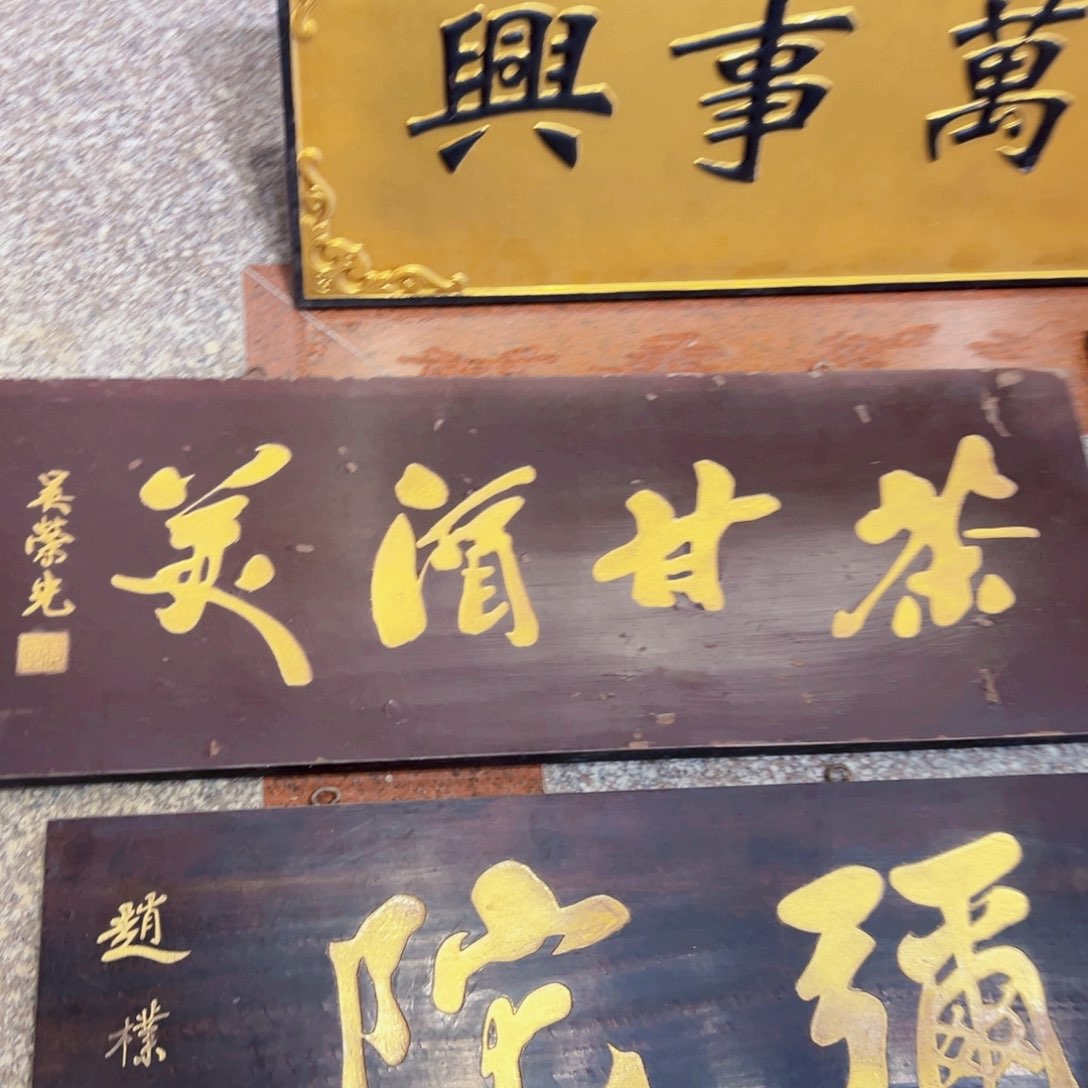 萬事興
茶甘酒美
吳榮光
彌陀
趙樸